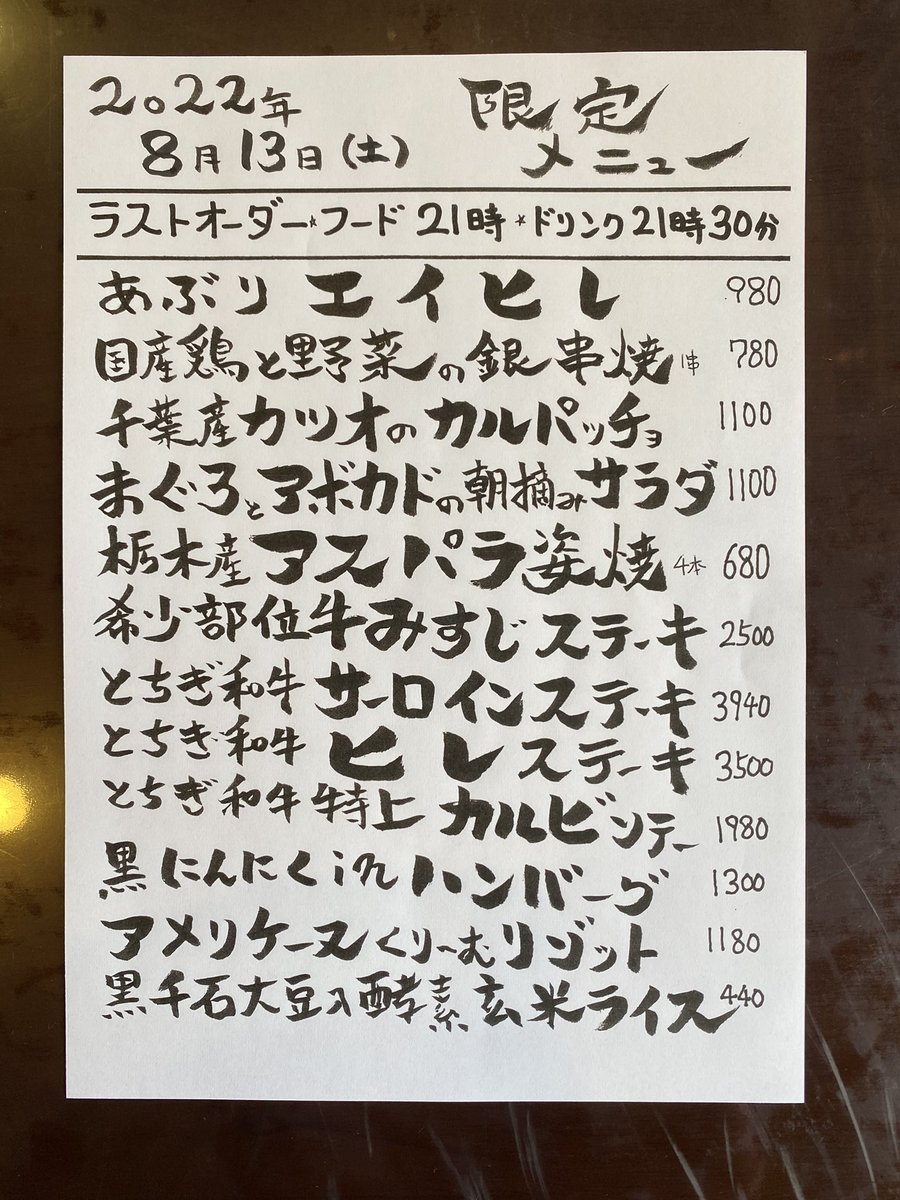 2022年 限定
8月13日(土) メニュー
ラストオーダー*フード 21時 *ドリンク21時30分
あぶり エイヒレ 980
国産鶏と野菜の銀串焼 1串 780
千葉産カツオのカルパッチョ 1100
まぐろとアボカドの朝摘みサラダ 1100
栃木産アスパラ姿焼 4本 680
希少部位牛みすじステーキ 2500
とちぎ和牛 サーロインステーキ 3940
とちぎ和牛 ヒレステーキ 3500
とちぎ和牛特上 カルビソテー 1980
黒にんにくinハンバーグ 1300
アメリケーヌくりーむリゾット 1180
黒千石大豆入酵素玄米ライス 440